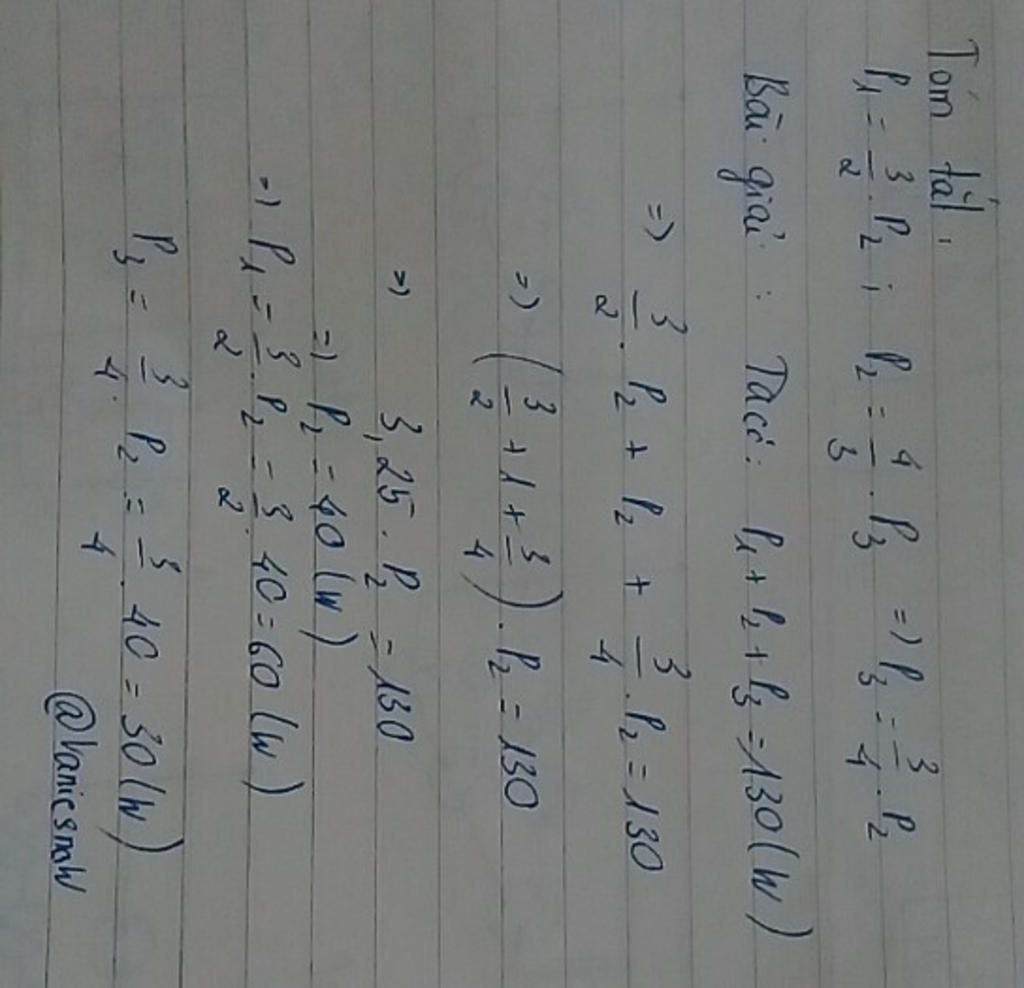 Tóm tắt:
P₁ = 3/2 . P₂ ; P₂ = 4/3 . P₃ => P₃ = 3/4 . P₂
Bài giải : Ta có: P₁ + P₂ + P₃ = 130 (W)
=> 3/2 . P₂ + P₂ + 3/4 . P₂ = 130
=> (3/2 + 1 + 3/4) . P₂ = 130
=> 3,25 . P₂ = 130
=> P₂ = 40 (W)
=> P₁ = 3/2 . P₂ = 3/2 . 40 = 60 (W)
P₃ = 3/4 . P₂ = 3/4 . 40 = 30 (W)